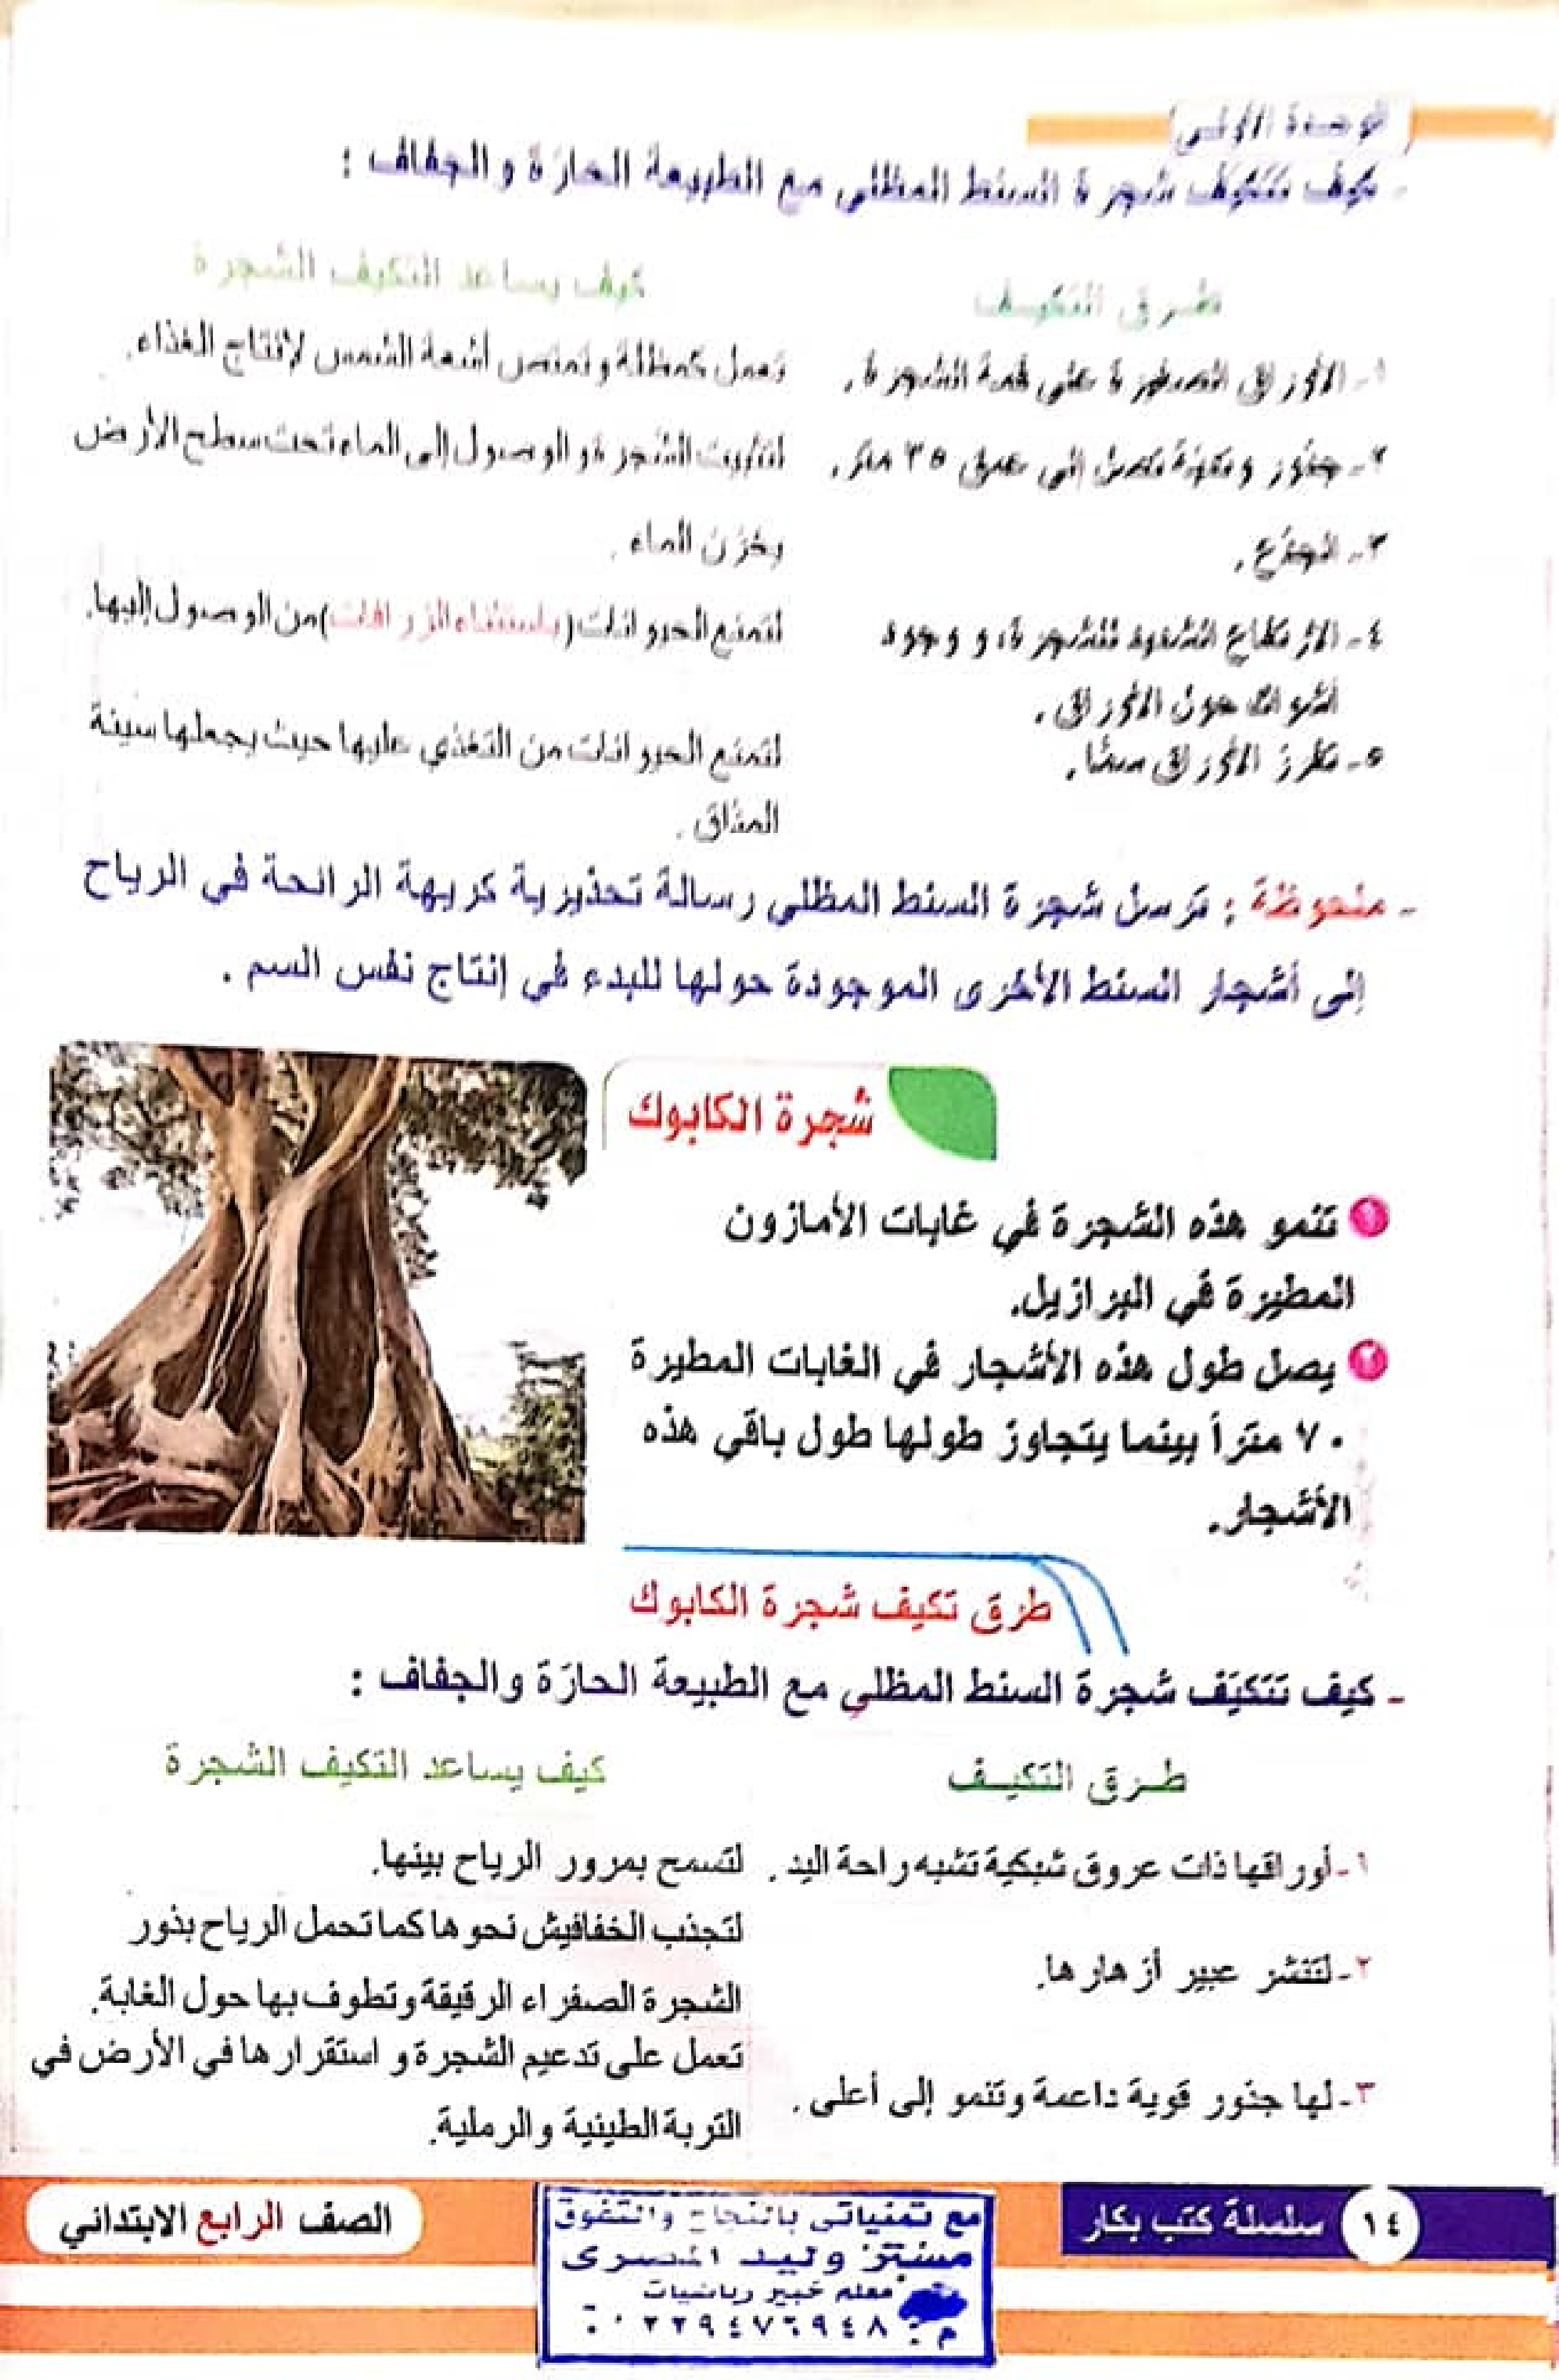 الوحدة الأولى
- كيف تتكيف شجرة السنط المظلى مع الطبيعة الحارة والجفاف :
طرق التكيف
كيف يساعد التكيف الشجرة
١- الأوراق الصغيرة على قمة الشجرة.
تعمل كمظلة وتمتص أشعة الشمس لإنتاج الغذاء.
٢- جذور وتدية تصل إلى عمق ٣٥ متر.
لتثبيت الشجرة والوصول إلى الماء تحت سطح الأرض
٣- الجذع.
يخزن الماء.
٤- الارتفاع الشديد للشجرة، ووجود
أشواك حول الأوراق.
لتمنع الحيوانات (باستثناء الزرافات) من الوصول إليها.
٥- تفرز الأوراق سمًا.
لتمنع الحيوانات من التغذي عليها حيث يجعلها سيئة
المذاق.
- ملحوظة : ترسل شجرة السنط المظلى رسالة تحذيرية كريهة الرائحة فى الرياح
إلى أشجار السنط الأخرى الموجودة حولها للبدء فى إنتاج نفس السم .
شجرة الكابوك
١ تنمو هذه الشجرة في غابات الأمازون
المطيرة في البرازيل.
٢ يصل طول هذه الأشجار في الغابات المطيرة
٧٠ متراً بينما يتجاوز طولها طول باقي هذه
الأشجار.
طرق تكيف شجرة الكابوك
- كيف تتكيَف شجرة السنط المظلي مع الطبيعة الحارَة والجفاف :
طـرق التكيـف
كيف يساعد التكيف الشجرة
١- أوراقها ذات عروق شبكية تشبه راحة اليد.
لتسمح بمرور الرياح بينها.
٢- لتنشر عبير أزهارها.
لتجذب الخفافيش نحوها كما تحمل الرياح بذور
الشجرة الصفراء الرقيقة وتطوف بها حول الغابة.
٣- لها جذور قوية داعمة وتنمو إلى أعلى.
تعمل على تدعيم الشجرة و استقرارها في الأرض في
التربة الطينية والرملية.
١٤ سلسلة كتب بكار
مع تمنياتى بالنجاح والتفوق
مستر وليد المصرى
معلم خبير رياضيات
م: ٠١٢٢٩٤٧٦٩٤٨
الصف الرابع الابتدائي